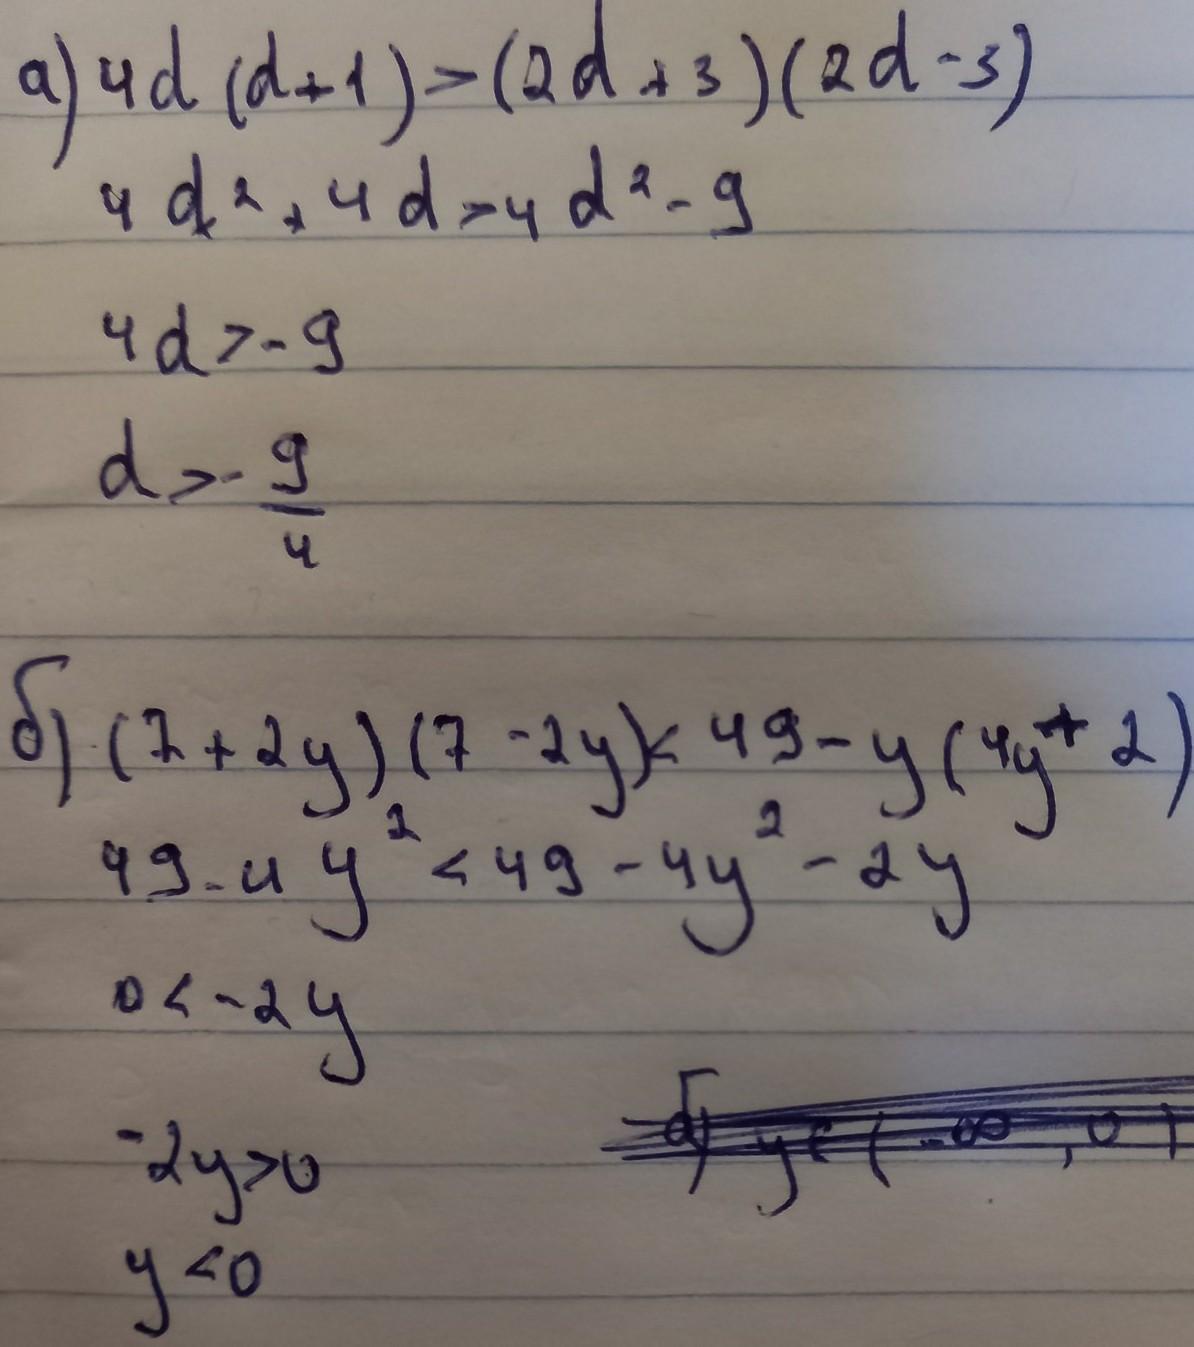 а) 4d (d+1) > (2d + 3)(2d - 3)
4d² + 4d > 4d² - 9
4d > - 9
d > - 9/4
б) (7 + 2y)(7 - 2y) < 49 - y (4y + 2)
49 - 4y² < 49 - 4y² - 2y
0 < - 2y
-2y > 0
б) y ∈ ( -∞ , 0 )
y < 0